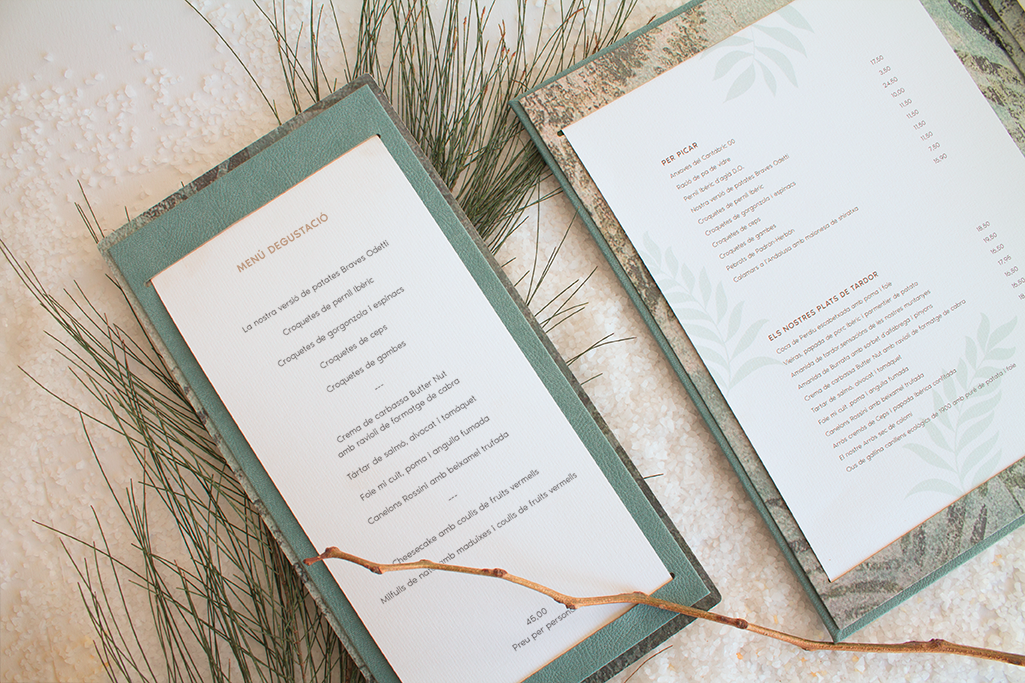 MENÚ DEGUSTACIÓ
La nostra versió de patates Braves Odetti
Croquetes de pernil Ibèric
Croquetes de gorgonzola i espinacs
Croquetes de ceps
Croquetes de gambes
---
Crema de carbassa Butter Nut
amb ravioli de formatge de cabra
Tàrtar de salmó, alvocat i tomàquet
Foie mi cuit, poma i anguila fumada
Canelons Rossini amb beixamel trufada
---
Cheesecake amb coulis de fruits vermells
Milfulls de amb maduixes i coulis de fruits vermells
45,00
Preu per persona
PER PICAR
Anxoves del Cantàbric 00 17,50
Ració de pa de vidre 3,50
Pernil Ibèric d'aglà D.O. 24,50
Nostra versió de patates Braves Odetti 10,00
Croquetes de pernil ibèric 11,50
Croquetes de gorgonzola i espinacs 11,50
Croquetes de ceps 11,50
Croquetes de gambes 11,50
Pebrots de Padrón-Herbón 7,50
Calamars a l'Andalusa amb maionesa de sriratxa 15,90
ELS NOSTRES PLATS DE TARDOR
Coca de Perdiu escabetxada amb poma i foie 18,50
Vieires, papada de porc ibèric i parmentier de patata 19,50
Amanida de tardor sensacions de les nostres muntanyes
Amanida de Burrata amb sorbet d'alfàbrega i pinyons
Crema de carbassa Butter Nut amb ravioli de formatge de cabra
Tàrtar de salmó, alvocat i tomàquet
Foie mi cuit, poma i anguila fumada
Canelons Rossini amb beixamel trufada
Arròs cremós de Ceps i papada ibèrica confitada
El nostre Arròs sec de calamar
Ous de gallina ecològics de 1900 amb puré de patata i foie